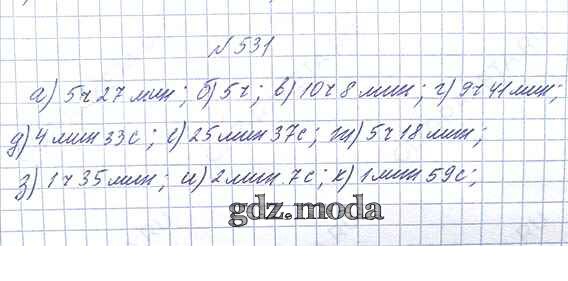 №531
а) 5ч 27 мин; б) 5ч; в) 10ч 8 мин; г) 9ч 41 мин;
д) 4 мин 33с; е) 25 мин 37с; ж) 5ч 18 мин;
з) 1ч 35 мин; и) 2 мин 7с; к) 1 мин 59с;
gdz.moda